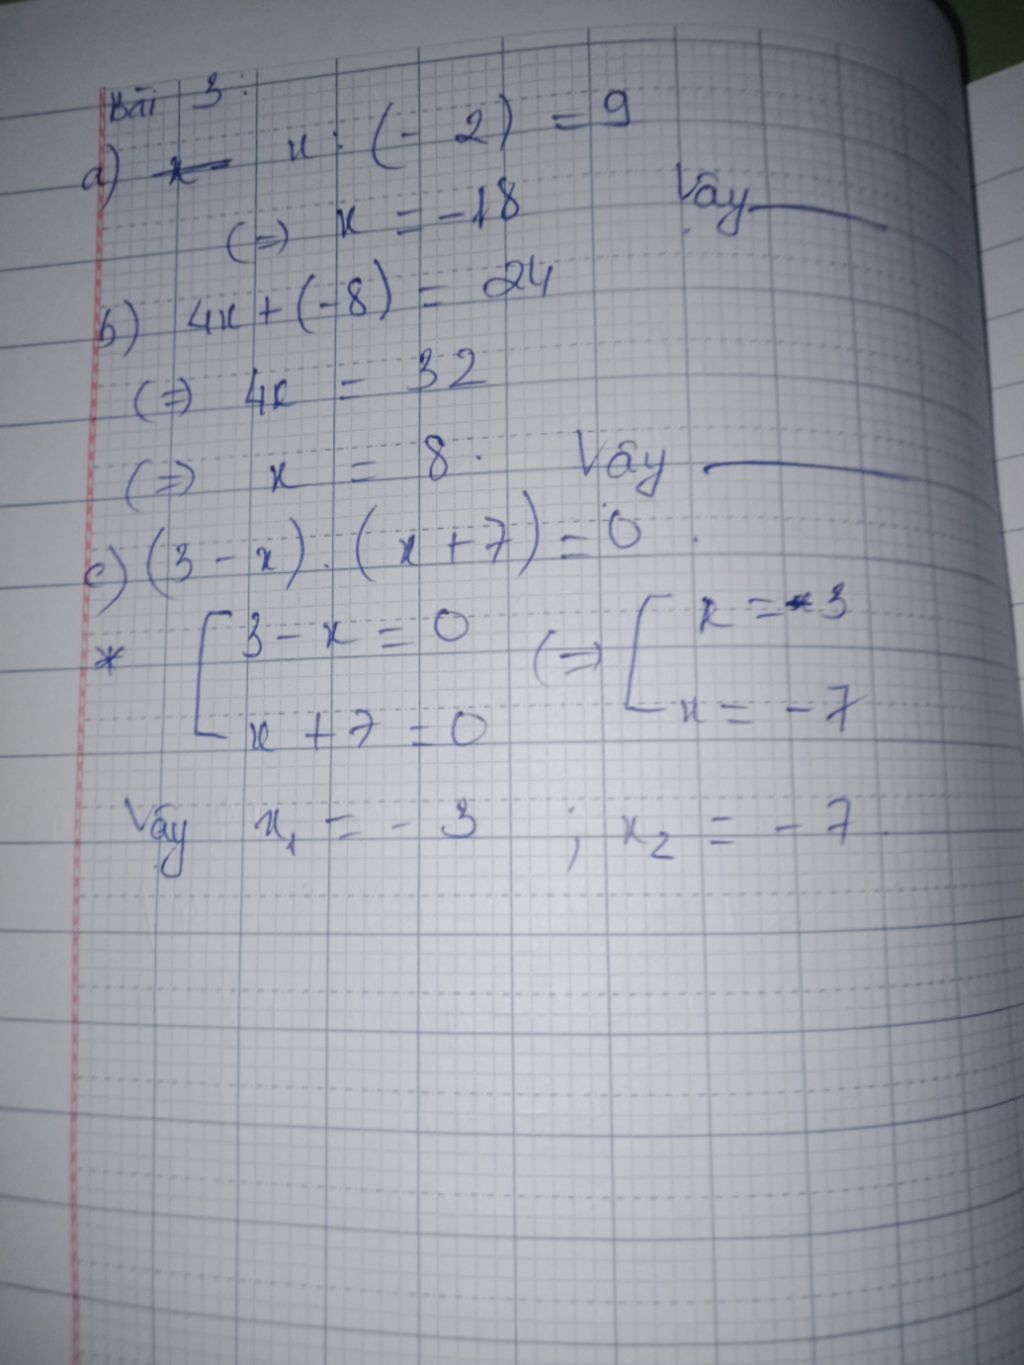 Bài 3:
a) x : (- 2) = 9
(=) x = -18 Vậy
b) 4x + (-8) = 24
(=) 4x = 32
(=) x = 8. Vậy
c) (3 - x) . (x + 7) = 0.
* [ 3 - x = 0 (=) [ x = -3
x + 7 = 0 x = - 7
Vậy x₁ = - 3 ; x₂ = - 7